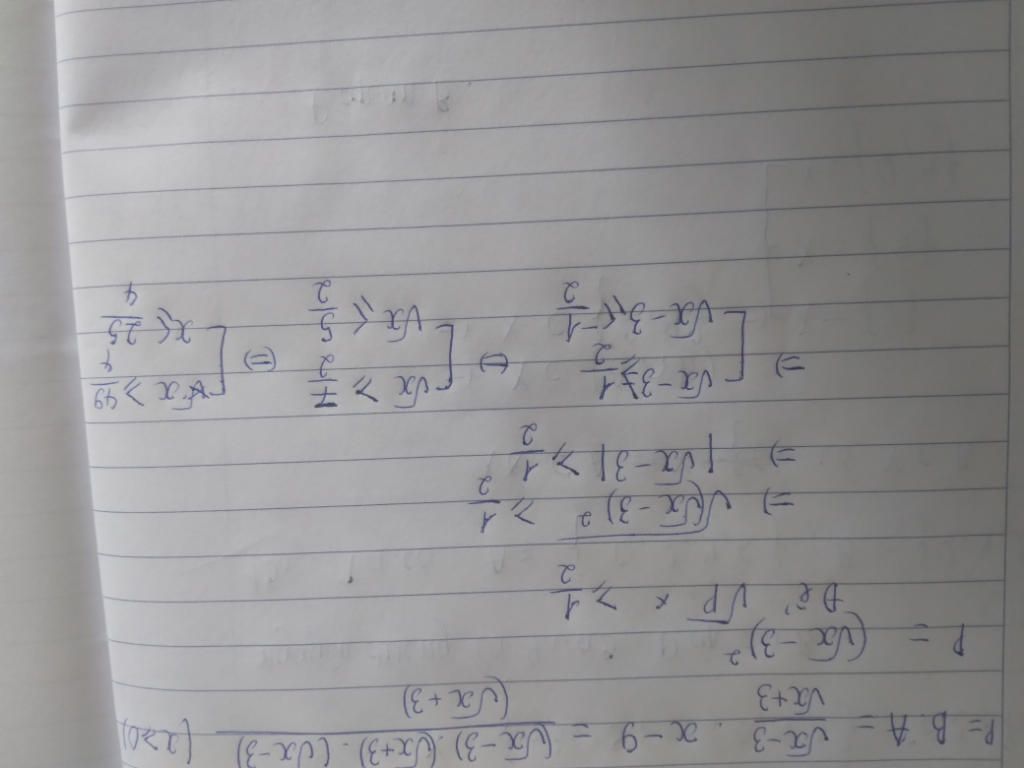 P = B.A = \frac{\sqrt{x}-3}{\sqrt{x}+3} . x-9 = \frac{(\sqrt{x}-3).(\sqrt{x}+3).(\sqrt{x}-3)}{(\sqrt{x}+3)} (x≥0)
P = (\sqrt{x}-3)^2
Để \sqrt{P} ≥ \frac{1}{2}
=> \sqrt{(\sqrt{x}-3)^2} ≥ \frac{1}{2}
=> |\sqrt{x}-3| ≥ \frac{1}{2}
=> [ \sqrt{x}-3 ≥ \frac{1}{2} (=) [ \sqrt{x} ≥ \frac{7}{2} (=) [ x ≥ \frac{49}{4}
\sqrt{x}-3 ≤ \frac{-1}{2} \sqrt{x} ≤ \frac{5}{2} x ≤ \frac{25}{4}